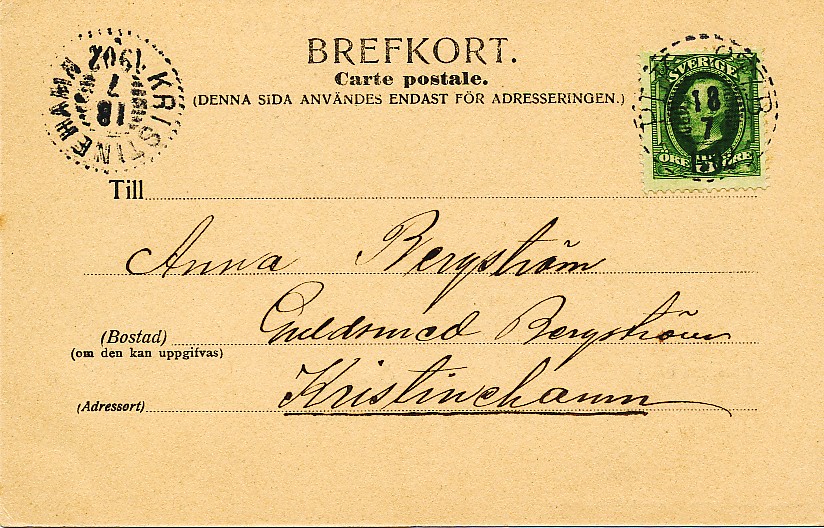 BREFKORT.
Carte postale.
(DENNA SIDA ANVÄNDES ENDAST FÖR ADRESSERINGEN.)
KRISTINEHAMN
18
7
1902
SVERIGE
18
7
ÖRE 5 ÖRE
Till
Anna Bergström
(Bostad) Guldsmed Bergström
(om den kan uppgifvas)
(Adressort) Kristinehamn